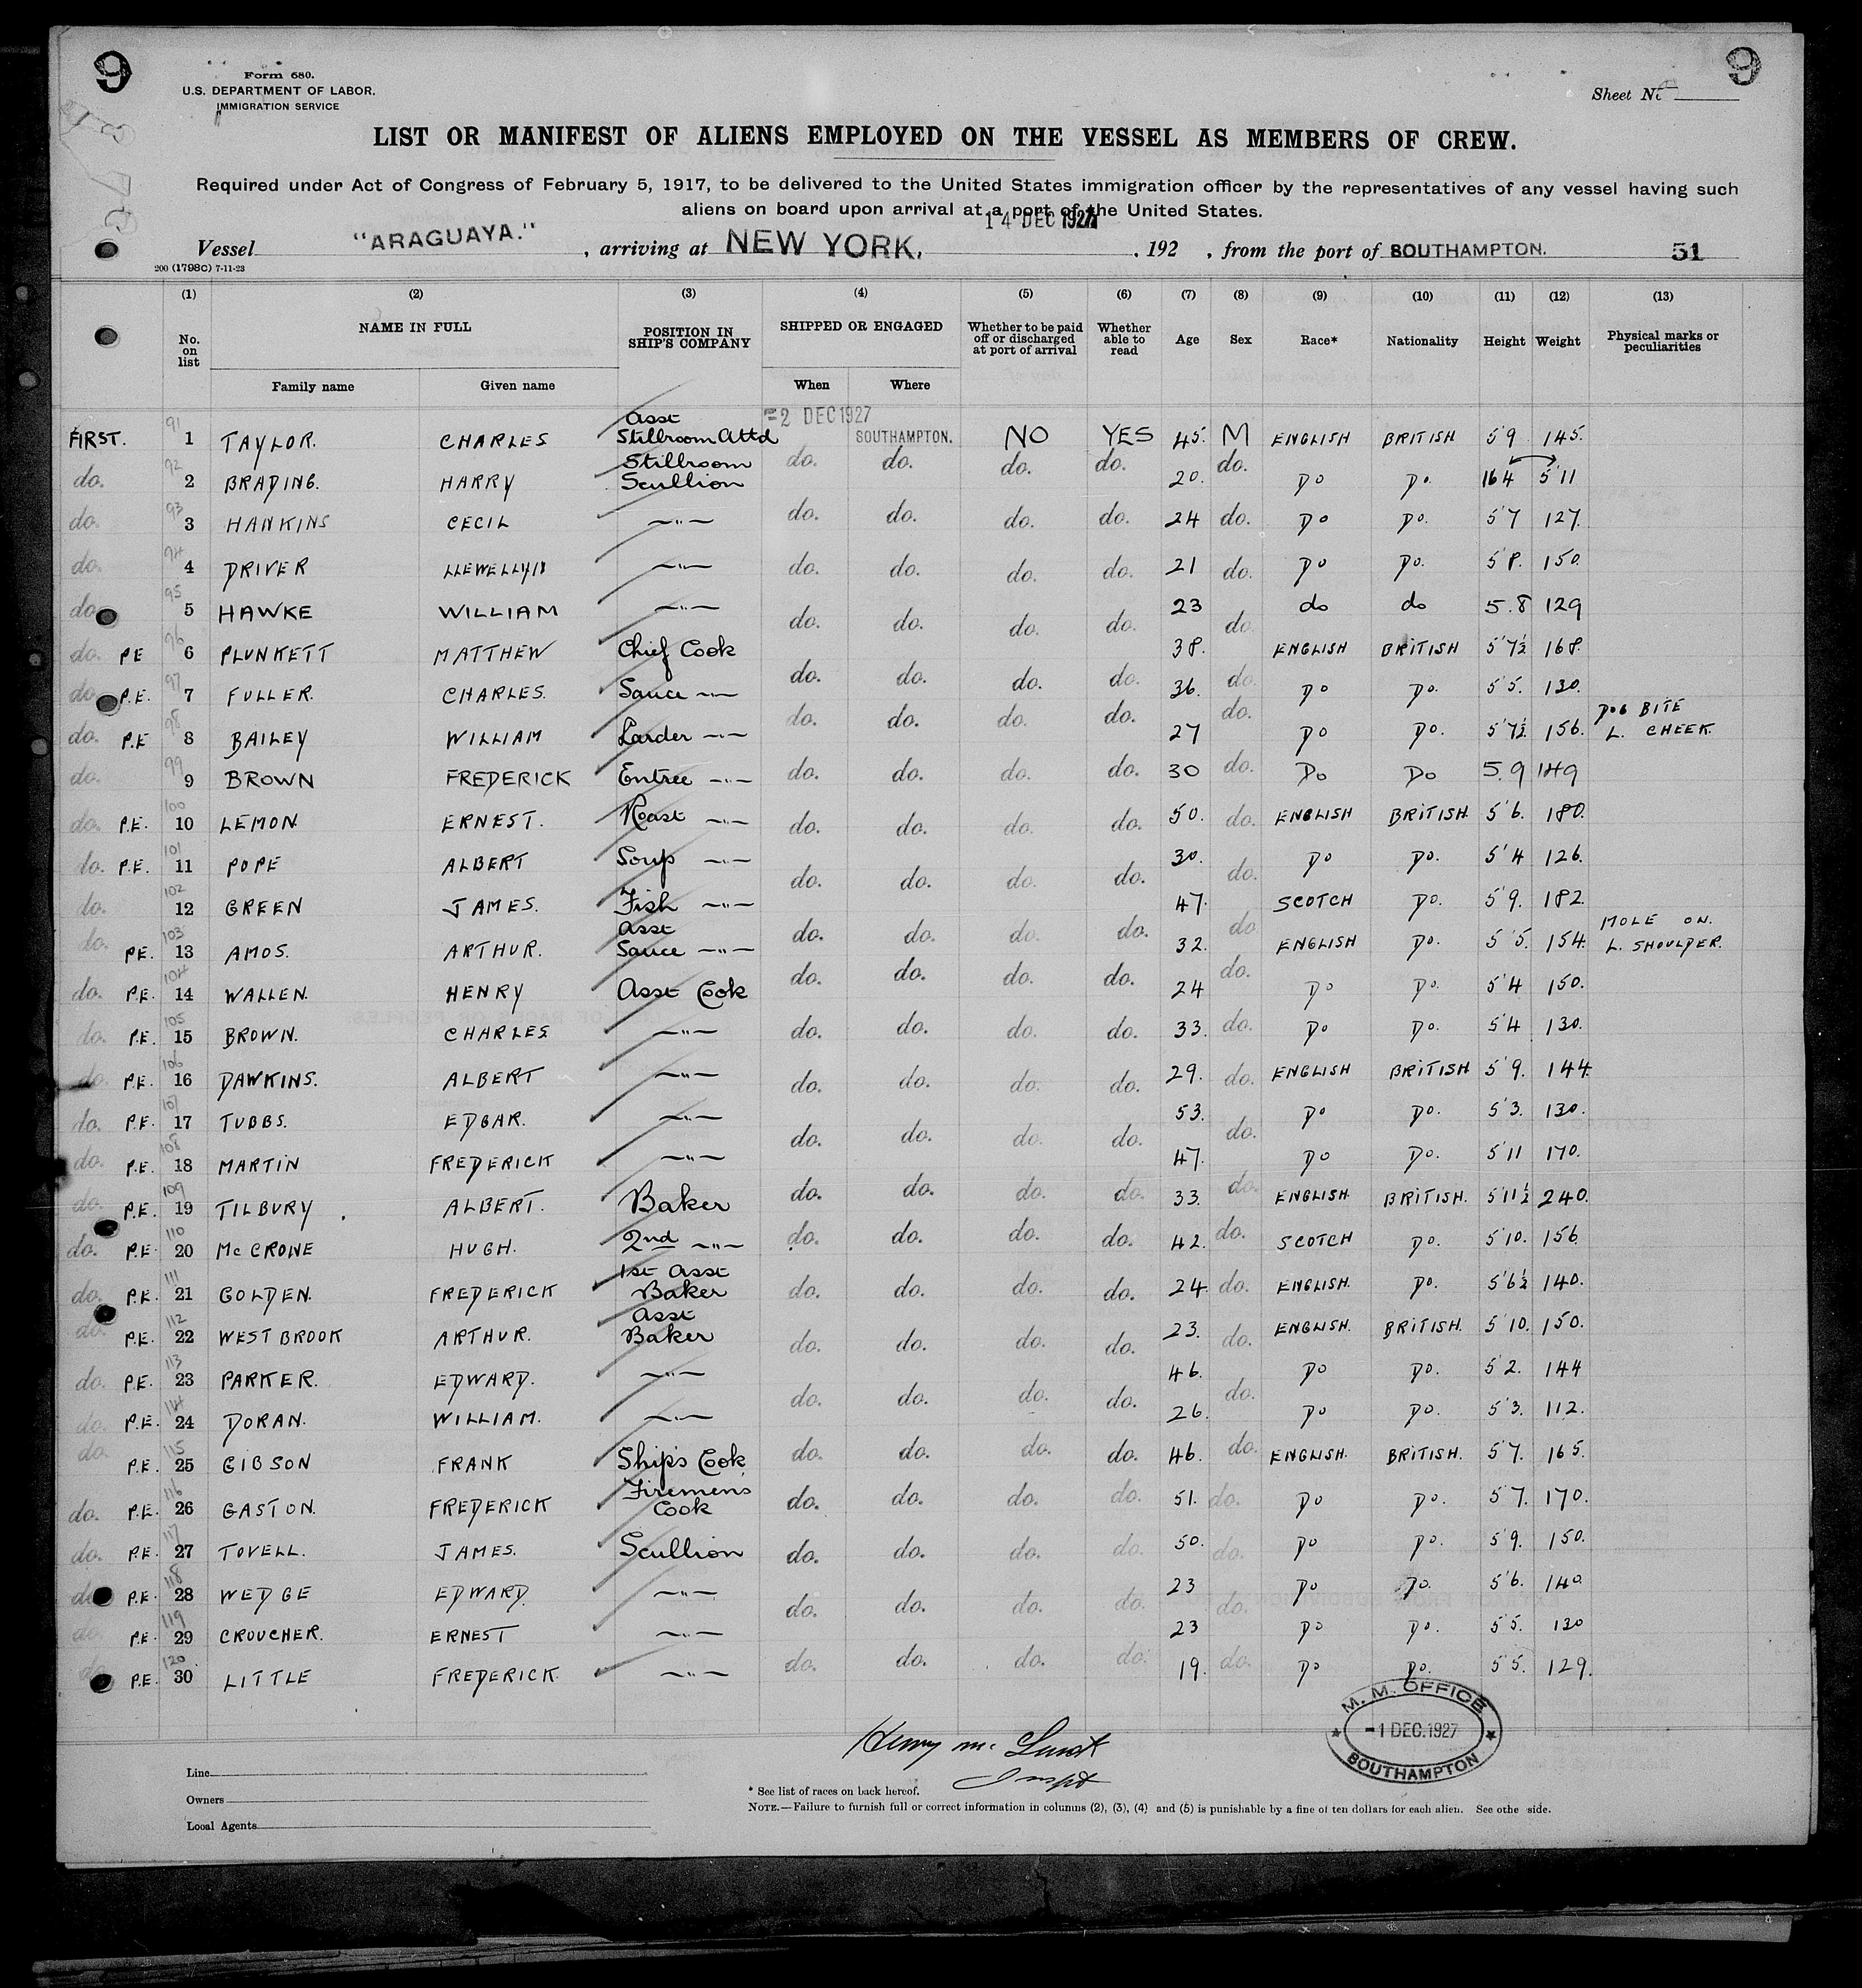 9
9
Form 680.
U.S. DEPARTMENT OF LABOR.
IMMIGRATION SERVICE
Sheet No
LIST OR MANIFEST OF ALIENS EMPLOYED ON THE VESSEL AS MEMBERS OF CREW.
Required under Act of Congress of February 5, 1917, to be delivered to the United States immigration officer by the representatives of any vessel having such
aliens on board upon arrival at a port of the United States.
14 DEC 1927
Vessel "ARAGUAYA." , arriving at NEW YORK, , 192 , from the port of SOUTHAMPTON. 51
200 (1798C) 7-11-23
(1) (2) (3) (4) (5) (6) (7) (8) (9) (10) (11) (12) (13)
No. on list NAME IN FULL POSITION IN SHIP'S COMPANY SHIPPED OR ENGAGED Whether to be paid off or discharged at port of arrival Whether able to read Age Sex Race* Nationality Height Weight Physical marks or peculiarities
Family name Given name When Where
FIRST. 91 1 TAYLOR. CHARLES Asst Stillroom Attd =2 DEC 1927 SOUTHAMPTON. NO YES 45. M ENGLISH BRITISH 5'9 145.
do. 92 2 BRADING. HARRY Stillroom Scullion do. do. do. do. 20. do. Do Do. 164 5'11
do. 93 3 HANKINS CECIL —"— do. do. do. do. 24 do. Do Do. 5'7 127.
do. 94 4 DRIVER LLEWELLYN —"— do. do. do. do. 21 do. Do Do. 5'8. 150.
do 95 5 HAWKE WILLIAM —"— do. do. do. do. 23 do. do do 5.8 129
do. PE 96 6 PLUNKETT MATTHEW Chief Cook do. do. do. do. 38. do. ENGLISH BRITISH 5'7½ 168.
do P.E. 97 7 FULLER. CHARLES. Sauce —"— do. do. do. do. 36. do. Do Do. 5'5. 130.
do. P.E 98 8 BAILEY WILLIAM Larder —"— do. do. do. do. 27 do. Do Do. 5'7½ 156. DOG BITE L. CHEEK.
do. 99 9 BROWN FREDERICK Entree —"— do. do. do. do. 30 do. Do Do 5.9 149
do. P.E. 100 10 LEMON. ERNEST. Roast —"— do. do. do. do. 50. do. ENGLISH BRITISH. 5'6. 180.
do. P.E. 101 11 POPE ALBERT Soup —"— do. do. do. do. 30. do. Do Do. 5'4 126.
do. 102 12 GREEN JAMES. Fish —"— do. do. do. do. 47. do SCOTCH Do. 5'9. 182.
do. PE. 103 13 AMOS. ARTHUR. Asst Sauce —"— do. do. do. do. 32. do. ENGLISH Do. 5'5. 154. MOLE ON. L. SHOULDER.
do. P.E. 104 14 WALLEN. HENRY Asst Cook do. do. do. do. 24 do. Do Do. 5'4 150.
do. P.E. 105 15 BROWN. CHARLES —"— do. do. do. do. 33. do. Do Do. 5'4 130.
do. P.E. 106 16 DAWKINS. ALBERT —"— do. do. do. do. 29. do. ENGLISH BRITISH 5'9. 144.
do. P.E. 107 17 TUBBS. EDGAR. —"— do. do. do. do. 53. do. Do Do. 5'3. 130.
do. P.E. 108 18 MARTIN FREDERICK —"— do. do. do. do. 47. do. Do Do. 5'11 170.
do. P.E. 109 19 TILBURY. ALBERT. Baker do. do. do. do. 33. do. ENGLISH. BRITISH. 5'11½ 240.
do. P.E. 110 20 McCRONE HUGH. 2nd —"— do. do. do. do. 42. do. SCOTCH Do. 5'10. 156
do. P.E. 111 21 GOLDEN. FREDERICK 1st Asst Baker do. do. do. do. 24. do. ENGLISH. Do. 5'6½ 140.
do. P.E. 112 22 WESTBROOK ARTHUR. Asst Baker do. do. do. do. 23. do. ENGLISH. BRITISH. 5'10. 150.
do. P.E. 113 23 PARKER. EDWARD. —"— do. do. do. do. 46. do. Do Do. 5'2. 144
do. P.E. 114 24 DORAN. WILLIAM. —"— do. do. do. do. 26. do. Do Do. 5'3. 112.
do. P.E. 115 25 GIBSON FRANK Ship's Cook do. do. do. do. 46. do. ENGLISH. BRITISH. 5'7. 165.
do. P.E. 116 26 GASTON. FREDERICK Firemens Cook do. do. do. do. 51. do. Do Do. 5'7. 170.
do. P.E. 117 27 TOVELL. JAMES. Scullion do. do. do. do. 50. do. Do Do. 5'9. 150.
do P.E. 118 28 WEDGE EDWARD. —"— do. do. do. do. 23 do. Do Do. 5'6. 140.
do. P.E. 119 29 CROUCHER. ERNEST —"— do. do. do. do. 23 do. Do Do. 5'5. 130
do P.E. 120 30 LITTLE FREDERICK. —"— do. do. do. do. 19. do. Do Do. 5'5. 129.
M. M. OFFICE
-1 DEC. 1927
SOUTHAMPTON
Henry m.
Inspt
Line
Owners
Local Agents
* See list of races on back hereof.
NOTE.—Failure to furnish full or correct information in columns (2), (3), (4) and (5) is punishable by a fine of ten dollars for each alien. See othe side.